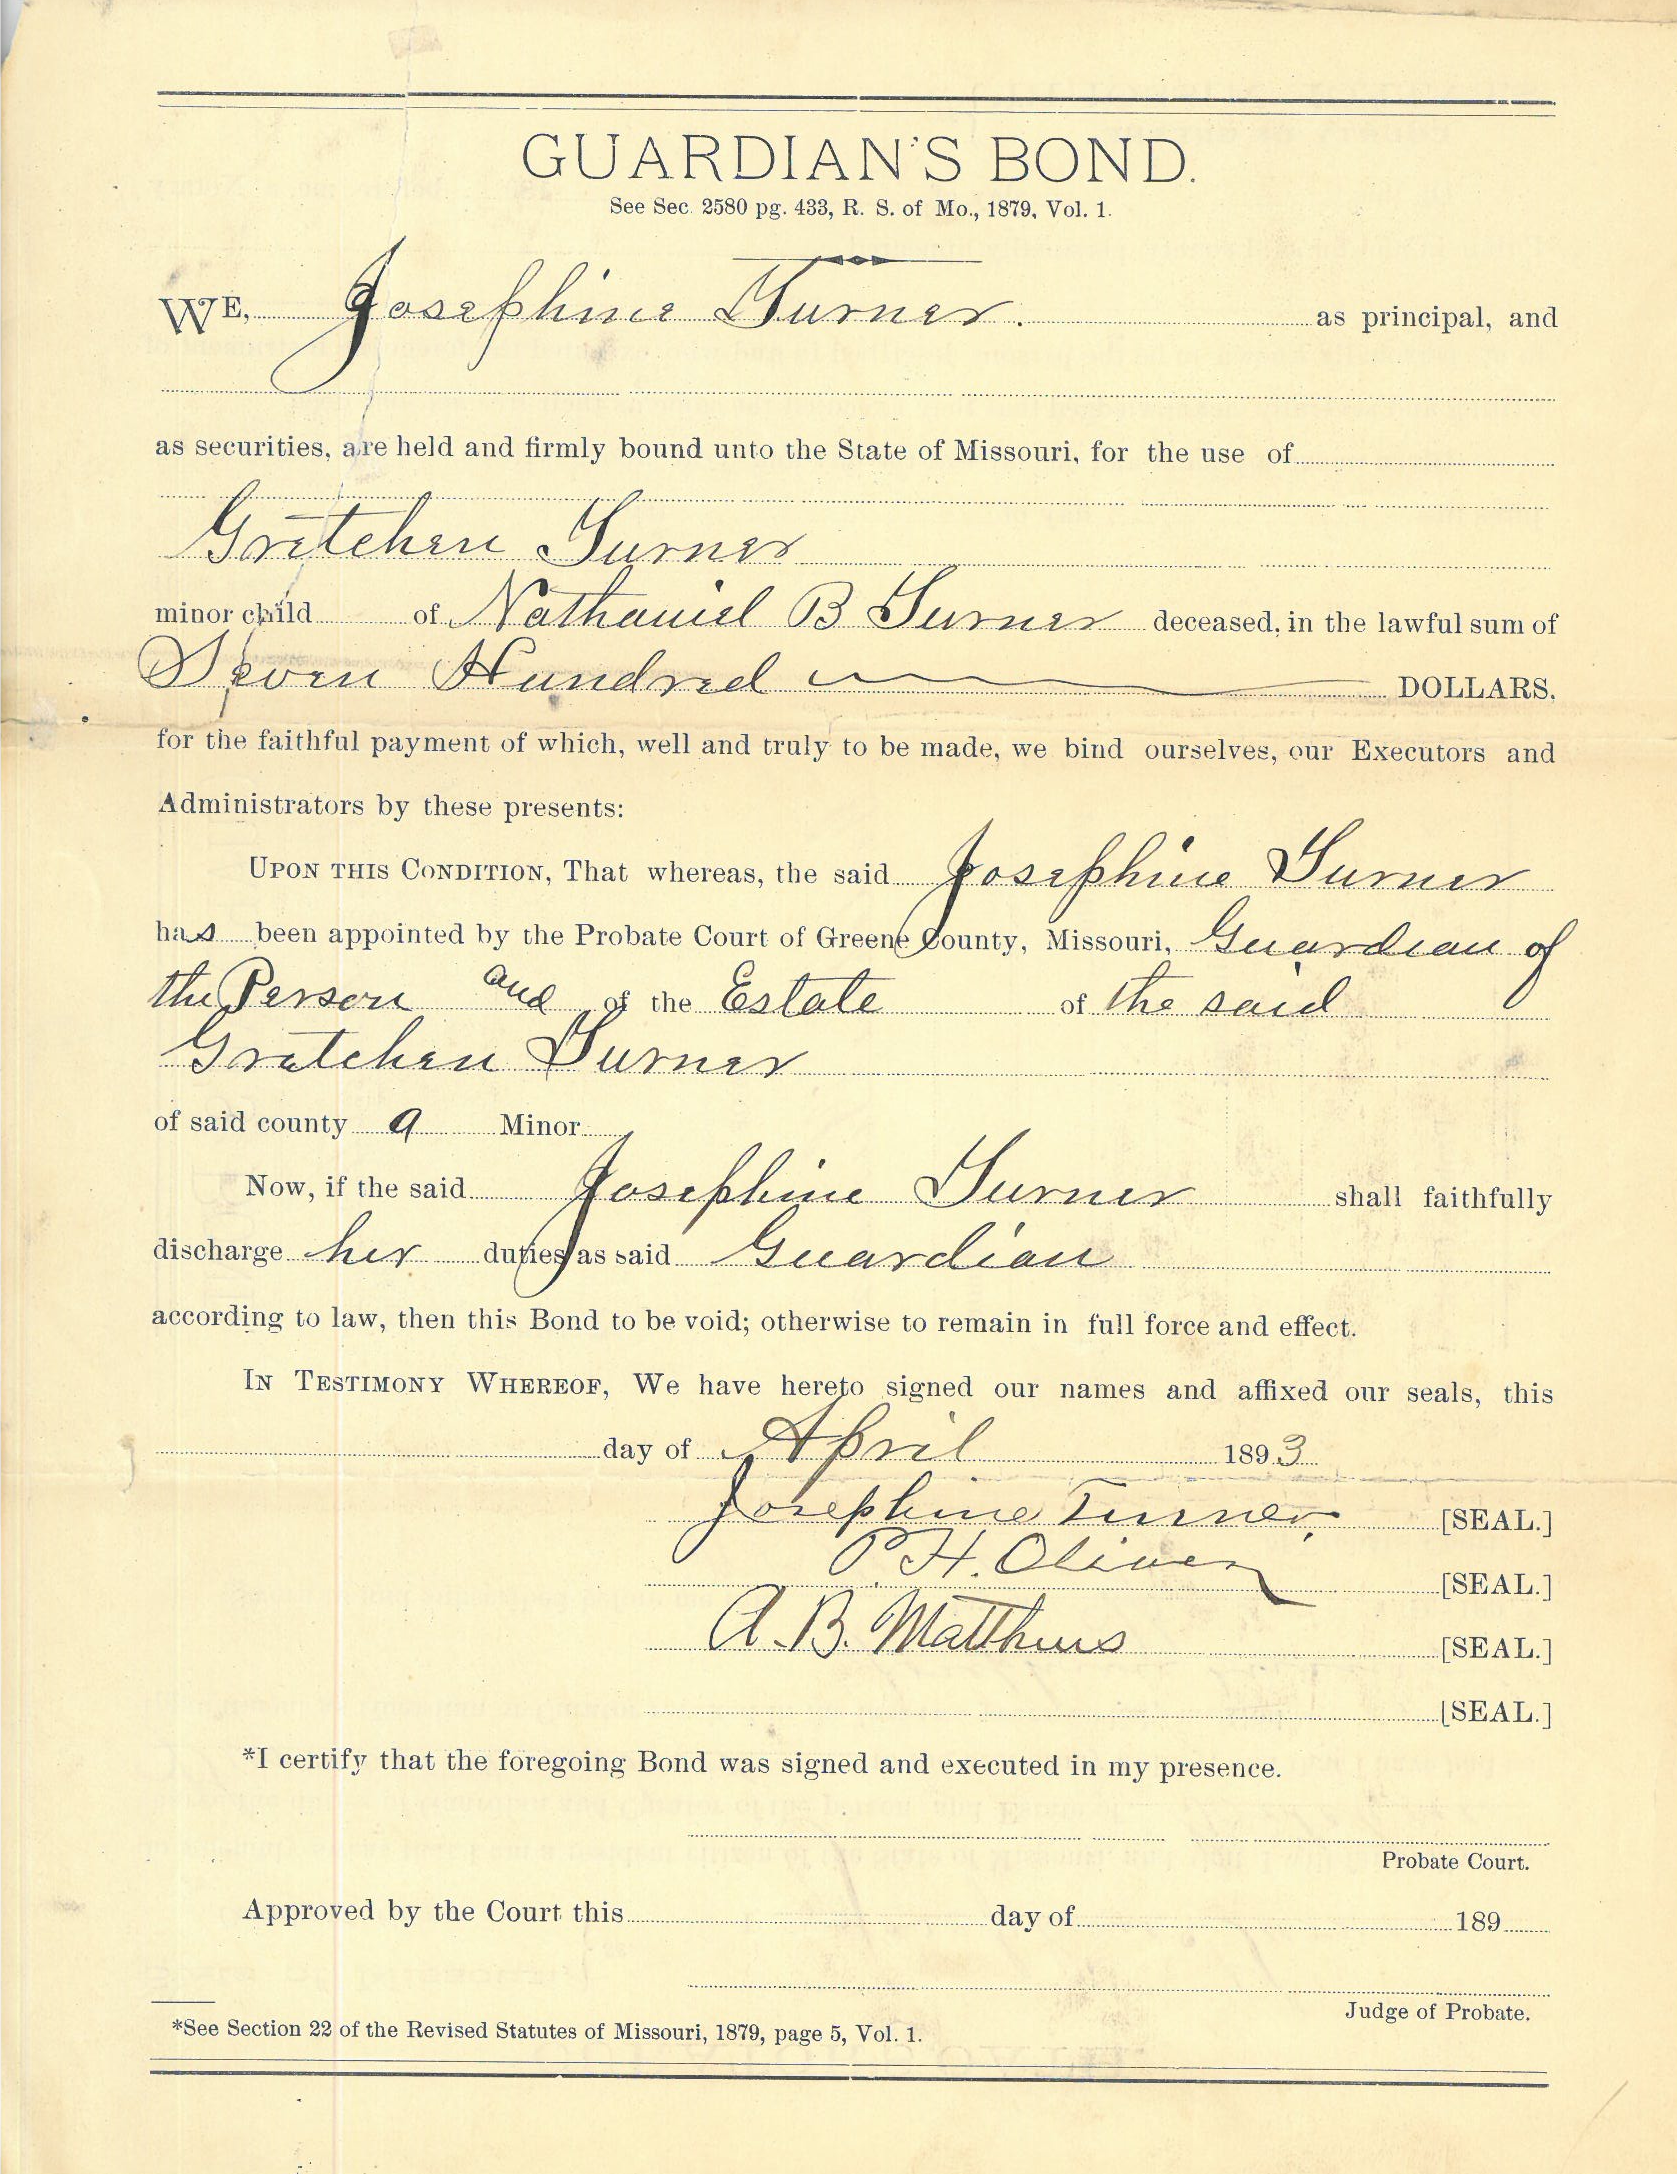 GUARDIAN'S BOND.
See Sec. 2580 pg. 433, R. S. of Mo., 1879, Vol. 1.
WE, Josephine Turner. as principal, and
as securities, are held and firmly bound unto the State of Missouri, for the use of
Gretchen Turner
minor child of Nathaniel B Turner deceased, in the lawful sum of
Seven Hundred DOLLARS.
for the faithful payment of which, well and truly to be made, we bind ourselves, our Executors and
Administrators by these presents:
UPON THIS CONDITION, That whereas, the said Josephine Turner
has been appointed by the Probate Court of Greene County, Missouri, Guardian of
the Person and of the Estate of the said
Gretchen Turner
of said county a Minor
Now, if the said Josephine Turner shall faithfully
discharge her duties as said Guardian
according to law, then this Bond to be void; otherwise to remain in full force and effect.
IN TESTIMONY WHEREOF, We have hereto signed our names and affixed our seals, this
day of April 1893
Josephine Turner [SEAL.]
P. H. Oliver [SEAL.]
A. B. Matthews [SEAL.]
[SEAL.]
*I certify that the foregoing Bond was signed and executed in my presence.
Probate Court.
Approved by the Court this day of 189
Judge of Probate.
*See Section 22 of the Revised Statutes of Missouri, 1879, page 5, Vol. 1.